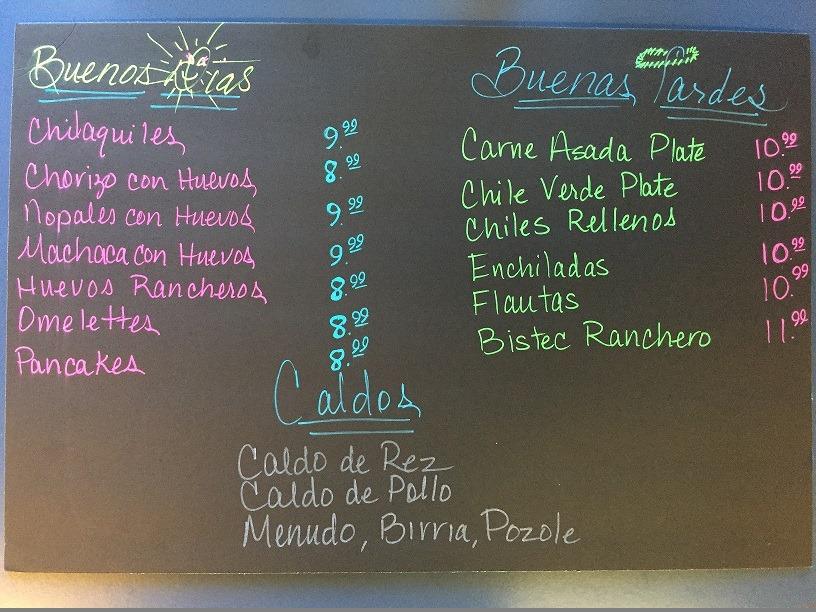 Buenos Dias
Chilaquiles 9.99
Chorizo con Huevos 8.99
Nopales con Huevos 9.99
Machaca con Huevos 9.99
Huevos Rancheros 8.99
Omelettes 8.99
Pancakes 8.99
Buenas Tardes
Carne Asada Plate 10.99
Chile Verde Plate 10.99
Chiles Rellenos 10.99
Enchiladas 10.99
Flautas 10.99
Bistec Ranchero 11.99
Caldos
Caldo de Rez
Caldo de Pollo
Menudo, Birria, Pozole